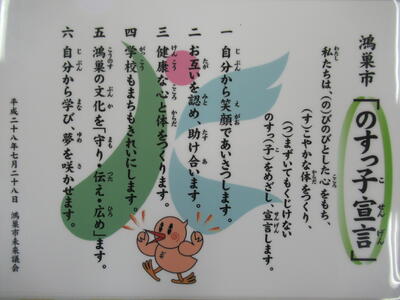 鴻巣市「のすっ子宣言」
私たちは、(の)びのびとした心をもち、
(す)こやかな体をつくり、
(つ)まずいてもくじけない
のすっ(子)をめざし、宣言します。
一 自分から笑顔であいさつします。
二 お互いを認め、助け合います。
三 健康な心と体をつくります。
四 学校もまちもきれいにします。
五 鴻巣の文化を「守り・伝え・広め」ます。
六 自分から学び、夢を咲かせます。
平成二十八年七月二十八日 鴻巣市未来議会